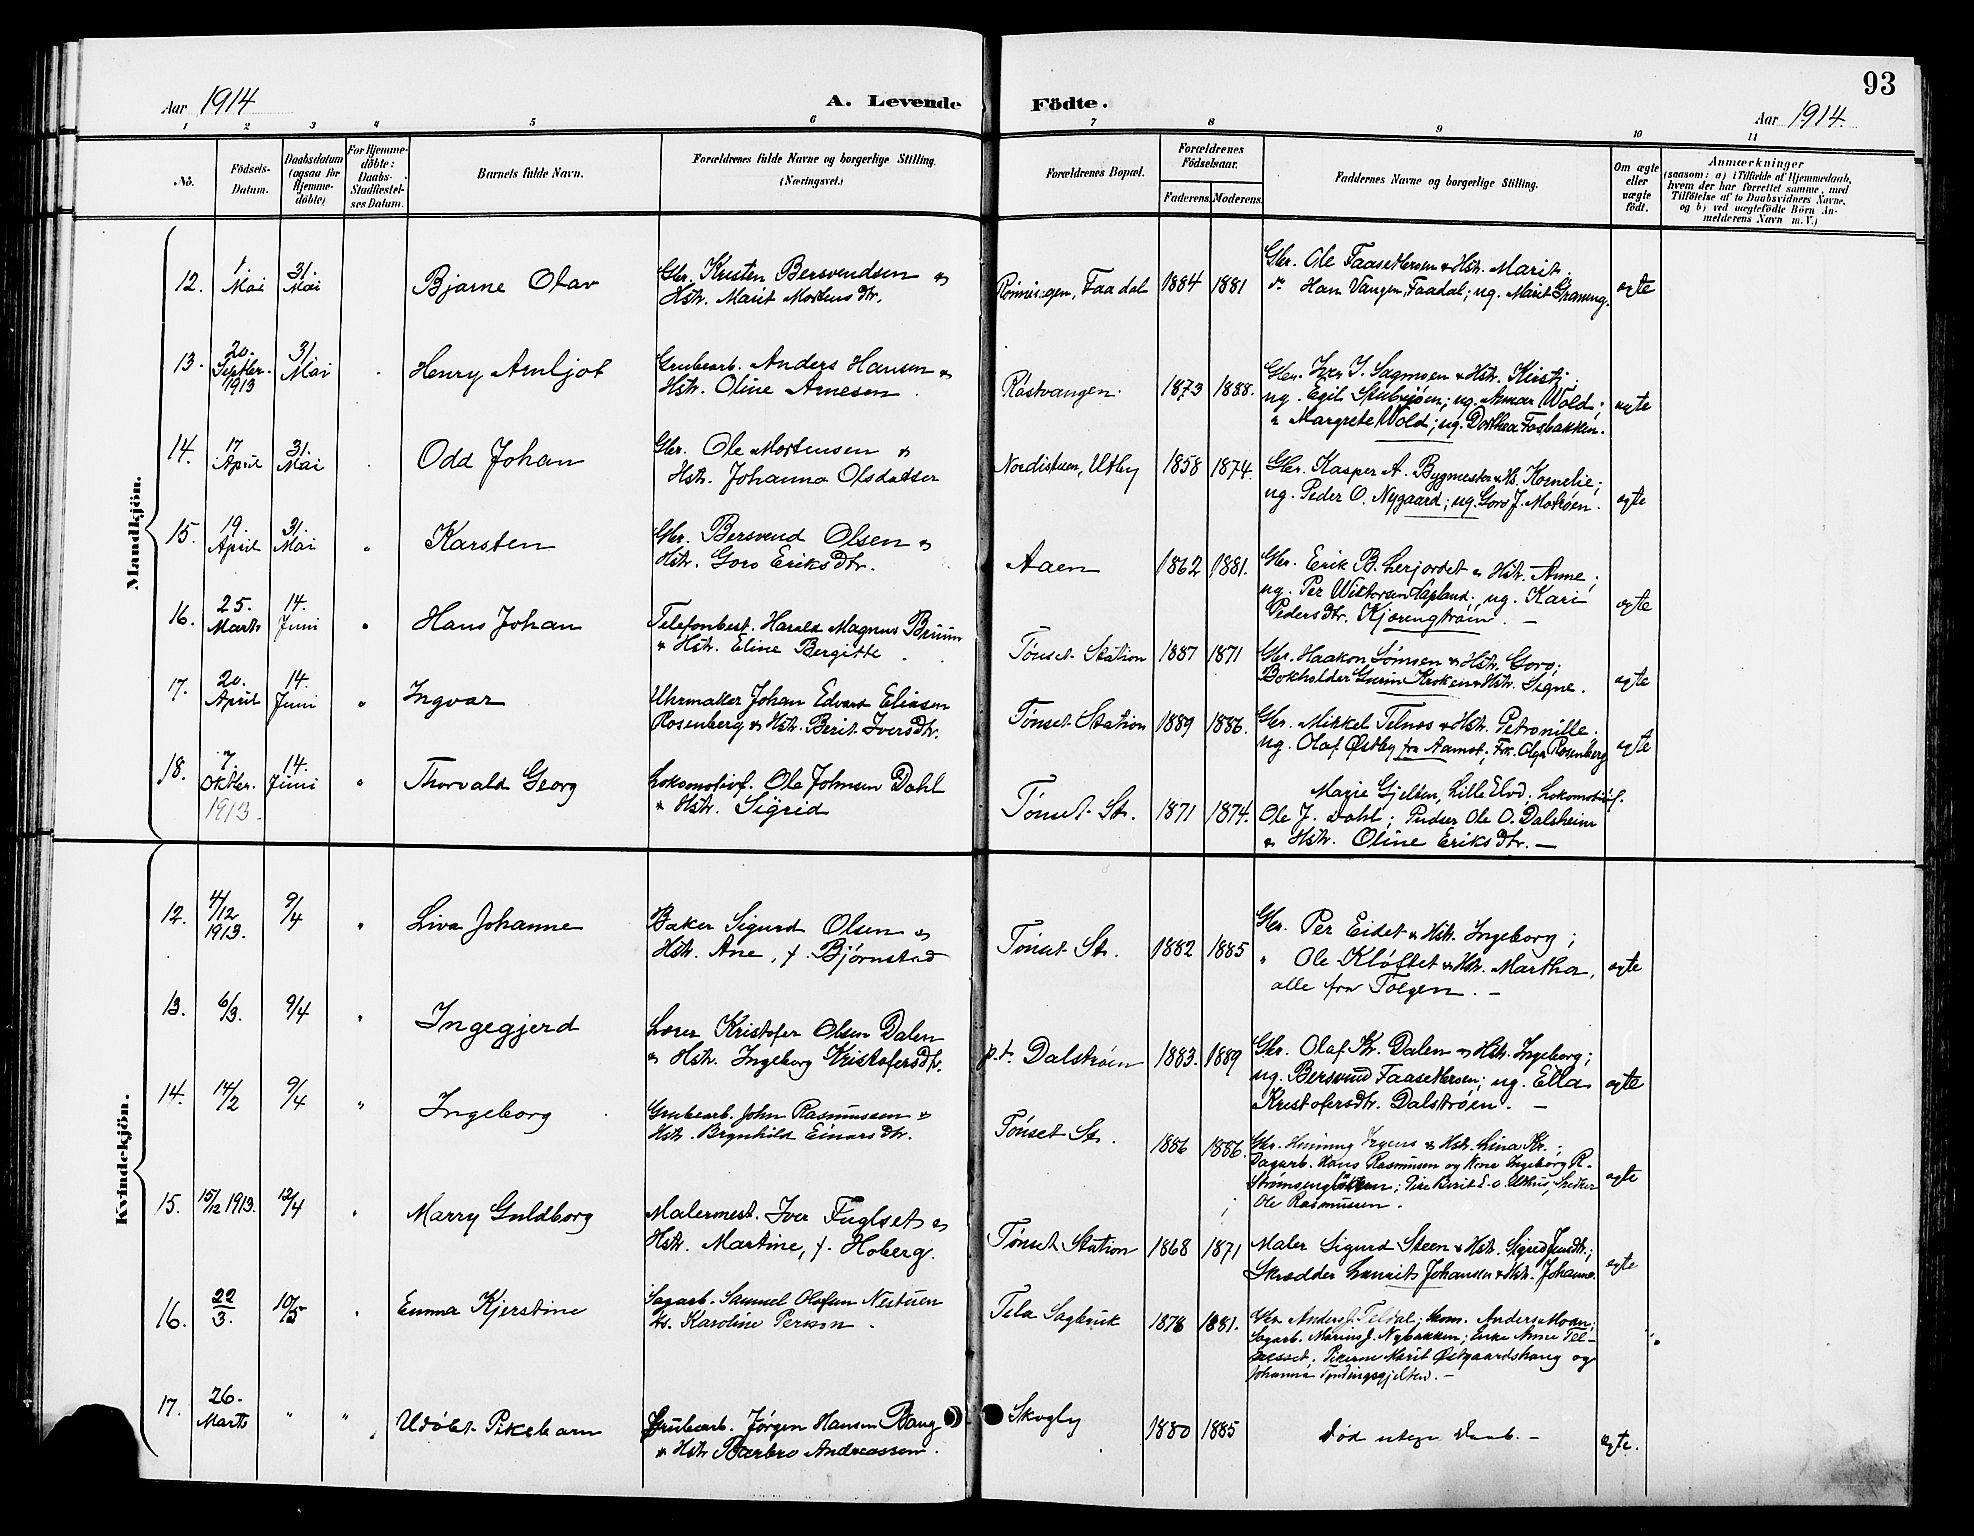 Aar 1914
A. Levende
Födte.
93
Aar 1914.
1 2 3 4 5 6 7 8 9 10 11
No.
Födsels-
Datum.
Daabsdatum
(ogsaa for
Hjemme-
døbte)
For Hjemme-
døbte:
Daabs-
Stadfæstel-
ses Datum.
Barnets fulde Navn.
Forældrenes fulde Navne og borgerlige Stilling.
(Næringsvei.)
Forældrenes Bopæl.
Forældrenes
Födselsaar.
Faderens. Moderens.
Faddernes Navne og borgerlige Stilling.
Om ægte
eller
uægte
født.
Anmærkninger
(saasom: a) i Tilfælde af Hjemmedaab,
hvem der har forrettet samme, med
Tilføielse af to Daabsvidners Navne,
og b) ved uægtefødte Börn An-
melderens Navn m. V.)
Mandkjön.
12. 1 Mai 31 Mai Bjarne Olav
Gbr. Kristen Bersvendsen &
Hstr. Marit Mortens dtr.
Rønningen, Faadal 1884 1881
Gbr. Ole Faasetersen & Hstr. Marit;
do Hans Vangen, Faadal; ug. Marit
ægte
13. 20. Septbr. 1913 31 Mai Henry Arnljot
Grubearb. Anders Hansen &
Hstr. Oline Arnesen
Røstvangen. 1873 1888.
Gbr. Iver J. Sagmoen & Hstr. Kirsti;
ug. Egil Stubsjøen; ug. Wold;
" Margrete Wold; ug. Dorthea Fosbakken.
ægte
14. 17 April 31 Mai Odd Johan
Gbr. Ole Mortensen &
Hstr. Johanna Olsdatter
Nordistuen, Utby 1858 1874.
Gbr. Kasper A. Bygmester & Hs. Kornelie;
ug. Peder O. Nygaard; ug. Goro J. Motrøen.
ægte
15. 19. April 31 Mai " Karsten
Gbr. Bersvend Olsen &
Hstr. Goro Eriks dtr.
Aaen 1862 1881.
Gbr. Erik B. Lerjordet & Hstr. Anne;
ug. Per Lapland; ug. Kari
Pedersdtr.
ægte
16. 25. Marts 14. Juni " Hans Johan
Telefonbest. Harald Magnus Bruun
& Hstr. Eline Bergitte
Tønset Station 1887 1871
Gbr. Haakon & Hstr. Goro;
Bokholder Kroken & Hstr. Signe.
ægte
17. 20. April 14. Juni " Ingvar
Uhrmaker Johan Edvard Eliasen
Rosenberg & Hstr. Berit Iversdtr.
Tønset Station 1889 1886.
Gbr. Mikkel Telnes & Hstr. Petronille;
ug. Olaf Østby fra Aamot; Frk. Olga Rosenberg
ægte
18. 7. Oktbr. 1913. 14. Juni " Thorvald Georg
Lokomotivf. Ole Johnsen Dahl
& Hstr. Sigrid
Tønset St. 1871 1874.
Marie Gjelten, Lille Elvd. Lokomotivf.
Ole J. Dahl; Pudser Ole O. Dalsheim
& Hstr. Oline Eriks dtr. —
Kvindekjön.
12. 4/12 1913. 9/4 " Liva Johanne
Baker Sigurd Olsen &
Hstr. Ane, f. Bjørnstad
Tønset St. 1882 1885
Gbr. Per Eidet & Hstr. Ingeborg;
" Ole Kløftet & Hstr. Martha,
alle fra Tolgen. —
ægte
13. 6/3. 9/4 " Ingegjerd
Lærer Kristofer Olsen Dalen
& Hstr. Ingeborg Kristofersdtr.
p.t. Dalstrøen 1883. 1889
Gbr. Olaf Kr. Dalen & Hstr. Ingeborg;
ug. Bersvend Faasetersen; ug. Ella
Kristofersdtr. Dalstrøen. —
ægte
14. 14/2 9/4 " Ingeborg
Grubearb. John Rasmussen &
Hstr. Brynhild Einars dtr.
Tønset St. 1886 1886.
Gbr. Henning & Hstr. Lina Kr.;
Dagarb. Hans Rasmussen og Kone Ingeborg R.
Pike Berit E. Snedker
Ole Rasmussen.
ægte
15. 15/12 1913. 12/4 " Marry Guldborg
Malermest. Iver Fuglset &
Hstr. Martine, f. Hoberg.
Tønset Station 1868 1871
Maler Sigurd Steen & Hstr. Sigrid
Skrædder Laurits Johansen & Hstr. Johanne.
ægte
16. 22/3. 10/5 " Emma Kjerstine
Sagarb. Samuel Olafsen Nestuen
Hs. Karoline Person.
Tela Sagbruk 1878 1881.
Gbr. Anders J. Teldal; Anders
Sagarb. Marius J. Nybakken; Enke Anne
Pikerne Marit Østgaardshaug og
Johanna —
"
17. 26. Marts " " Udøbt Pikebarn
Grubearb. Jørgen Hansen Bang
& Hstr Barbro Andreassen.
Skogly 1880 1885
Død uten Daab. —
ægte.